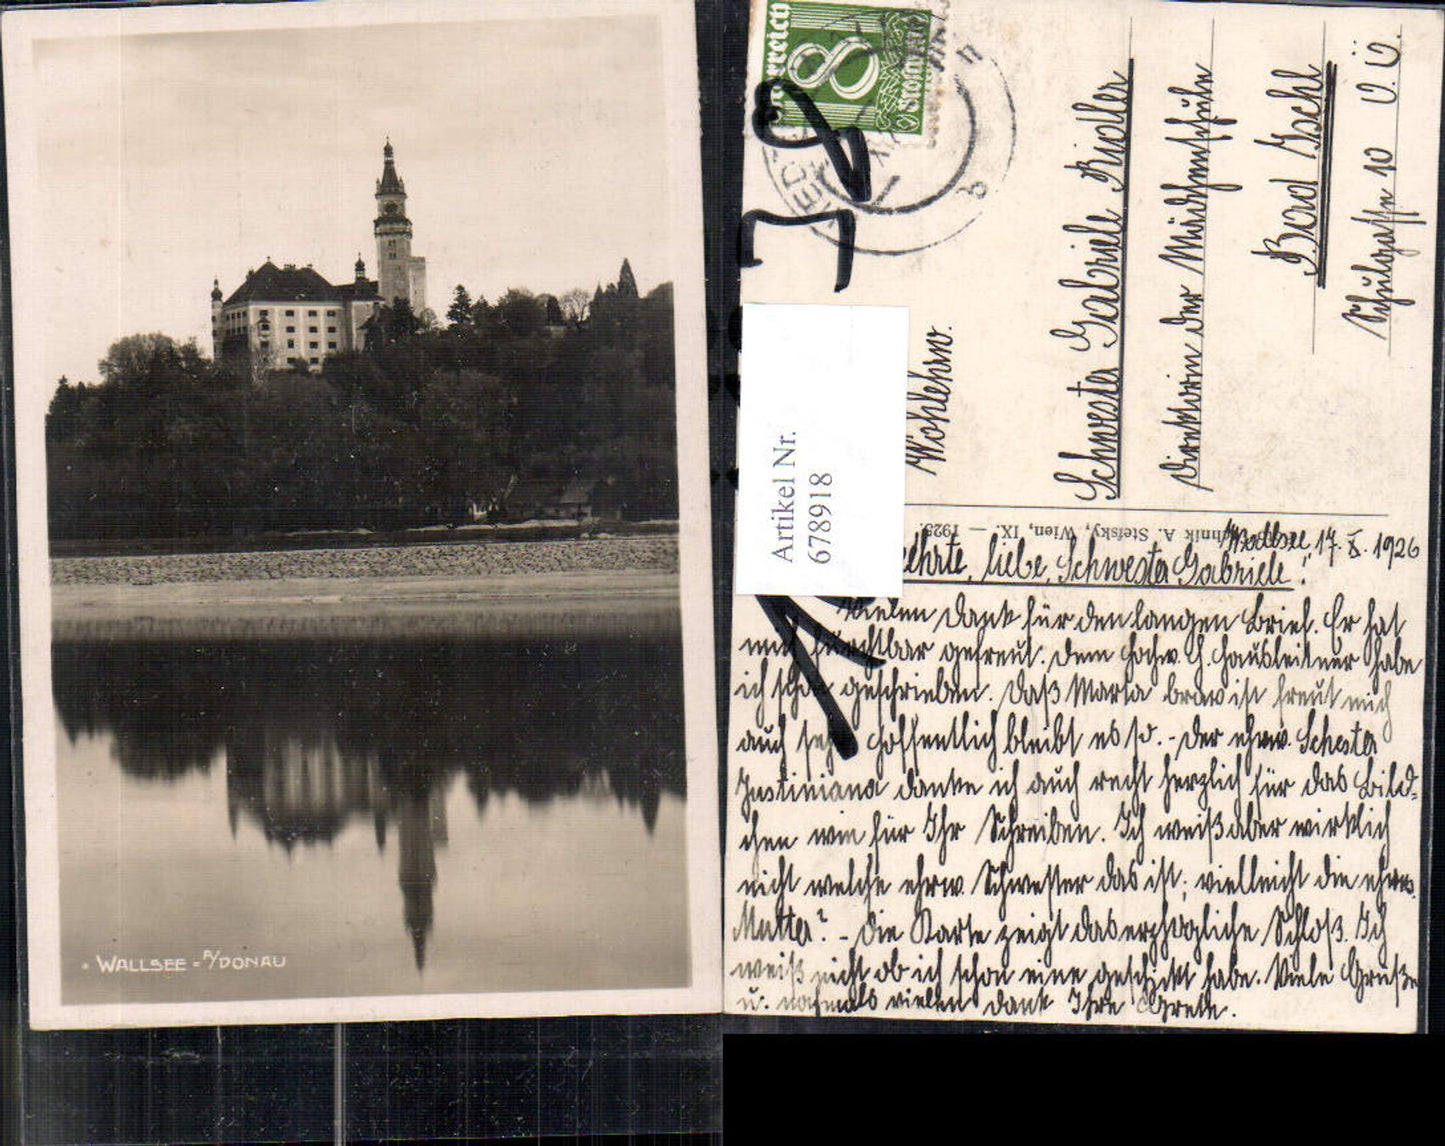 WALLSEE - A/DONAU
8
Artikel Nr.
678918
Wohlehrw.
Schwester Gabriele Riedler
Direktorin der Mädchenschule
Bad Ischl
Schulgasse 10 O.Ö.
A. Stefsky, Wien, IX. — 1925.
Wallsee, 17. X. 1926
ehrte, liebe Schwester Gabriele!
Vielen Dank für den langen Brief. Er hat
mich furchtbar gefreut. Dem hochw. H. Hausleitner habe
ich schon geschrieben. Daß Marta brav ist freut mich
auch sehr hoffentlich bleibt es so. - Der ehrw. Schester
Justiniana danke ich auch recht herzlich für das Bild-
chen wie für Ihr Schreiben. Ich weiß aber wirklich
nicht welche ehrw. Schwester das ist; vielleicht die ehrw.
Mutter? - Die Karte zeigt das erzhzogliche Schloß. Ich
weiß nicht ob ich schon eine geschickt habe. Viele Grüße
u. nochmals vielen Dank Ihre Grete.